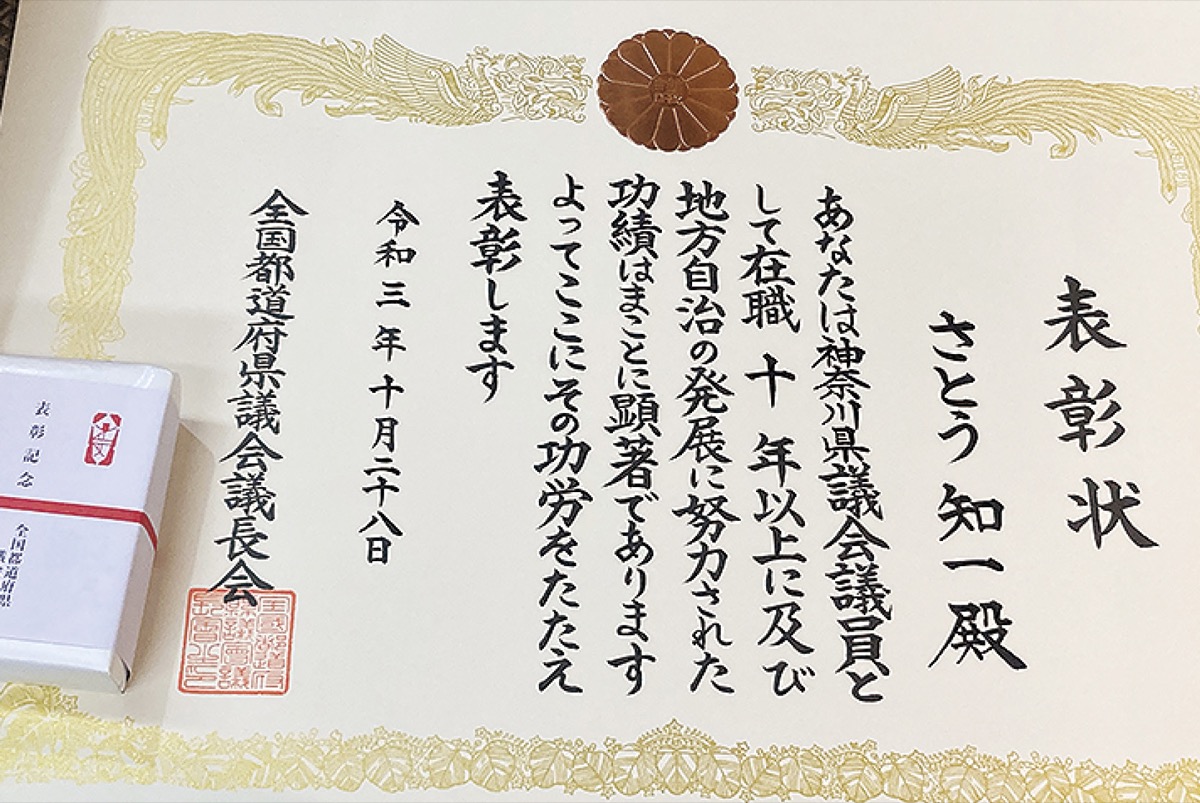 表彰状
さとう 知一 殿
あなたは神奈川県議会議員と
して在職 十 年以上に及び
地方自治の発展に努力された
功績はまことに顕著であります
よってここにその功労をたたえ
表彰します
令和三年十月二十八日
全国都道府県議会議長会
表彰記念
全国都道府県